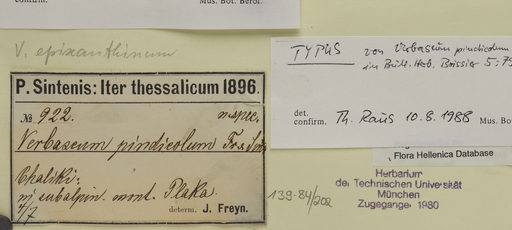 Mus. Bot. Berol.
confirm.
V. epixanthinum
P. Sintenis: Iter thessalicum 1896.
№ 922. n. spec.
Verbascum pindicolum Fr. &
in subalpin. mont. Plaka.
4/7
determ. J. Freyn.
TYPUS von Verbascum pindicolum
in Bull. Herb. Boissier 5:79
det.
confirm. Th. Raus 10.8.1988 Mus. Bo
, Flora Hellenica Database
139-84/202
Herbarium
der Technischen Universität
München
Zugegangen 1980